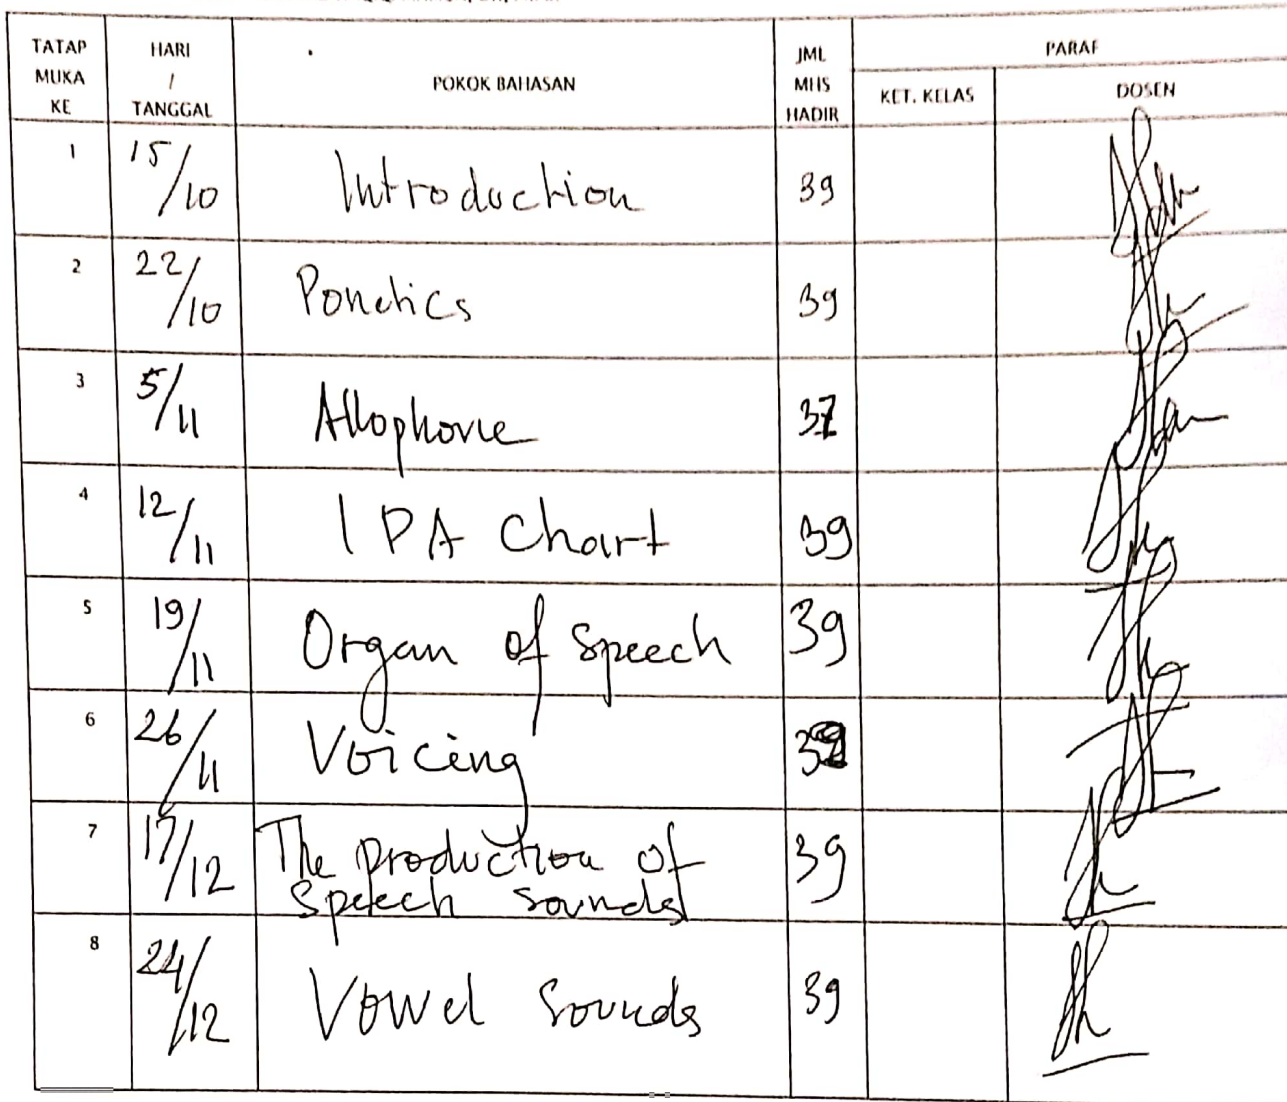 TATAP MUKA KE HARI / TANGGAL POKOK BAHASAN JML MHS HADIR PARAF
KET. KELAS DOSEN
1 15/10 Introduction 39
2 22/10 Ponetics 39
3 5/11 Allophone 37
4 12/11 IPA Chart 39
5 19/11 Organ of Speech 39
6 26/11 Voicing
7 17/12 The production of 39
Speech sounds
8 24/12 Vowel Sounds 39